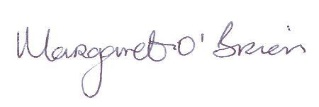 Margaret O'Brien